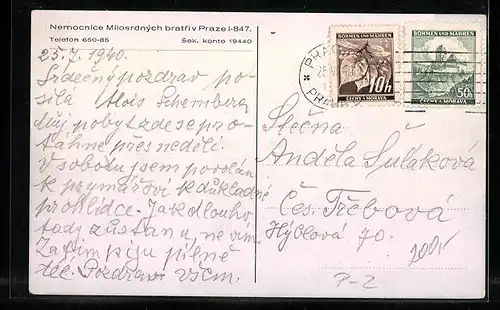 Nemocnice Milosrdných bratří v Praze I-847.
Telefon 650-85 Šek. konto 19440
25.7. 1940.
Srdečný pozdrav po-
sílá Alois Schemberg
Můj pobyt zde se pro-
táhne přes neděli.
V sobotu jsem povolán
k prymářovi k důkladné
prohlídce. Jak dlouho
tady zůstanu, ne vím.
Zatím piju pilně
těč. Pozdrav všem.
BÖHMEN UND MÄHREN
10h
ČECHY A MORAVA
BÖHMEN UND MÄHREN
50h
ČECHY A MORAVA
PRAHA
Slečna
Anděla Suľáková
Čes. Třebová
Hýblová 70.
P-2